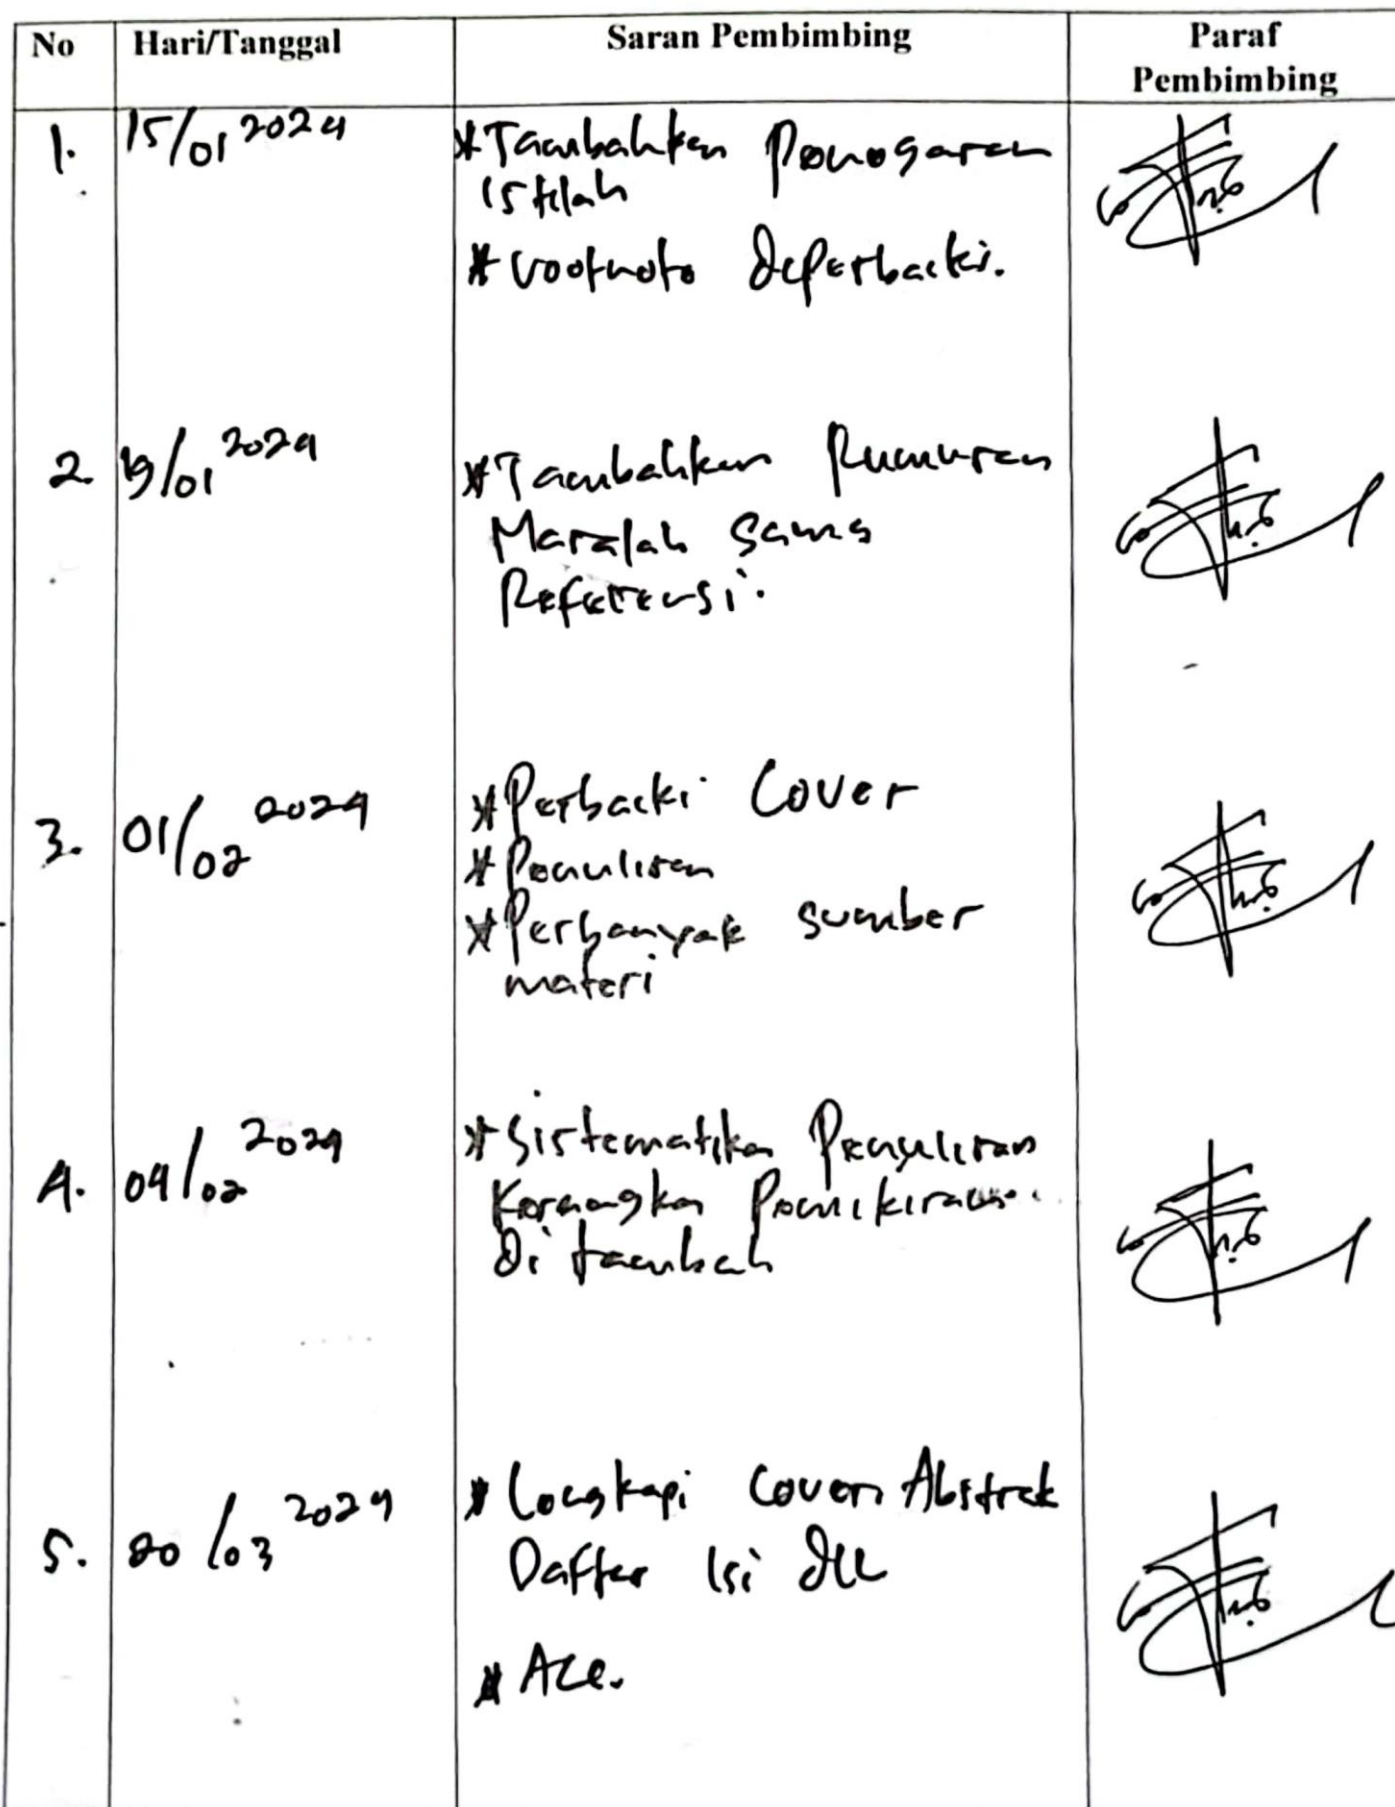 No Hari/Tanggal Saran Pembimbing Paraf
Pembimbing
1. 15/01 2024 * Tambahkan Penegasan
istilah
* Footnote diperbaiki.
2. 19/01 2024 * Tambahkan Rumusan
Masalah sama
Referensi.
3. 01/02 2024 * Perbaiki Cover
* Penulisan
* Perbanyak sumber
materi
4. 04/02 2024 * Sistematika Penulisan
Kerangka Pemikiran
Di tambah
5. 20/03 2024 * Lengkapi cover Abstrak
Daftar Isi dll
* Acc.